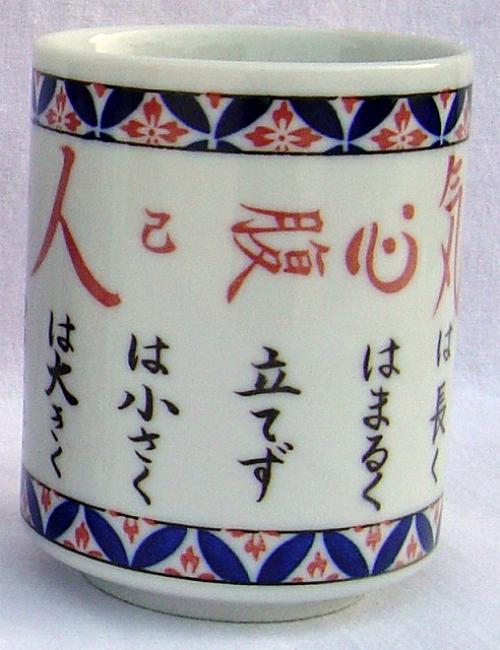 気は長く
心はまるく
腹立てず
己は小さく
人は大きく